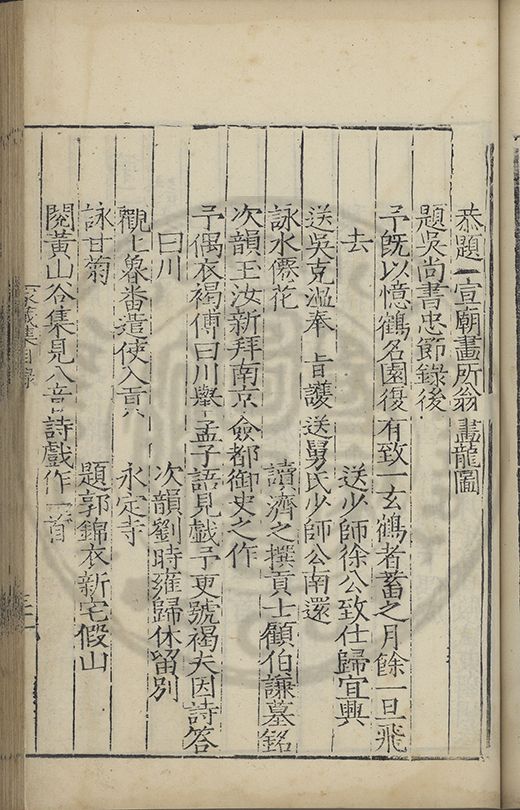 恭題 宣廟畫所翁畫龍圖
題吳尚書忠節錄後
予旣以憶鶴名園復有致一玄鶴者蓄之月餘一旦飛
去 送少師徐公致仕歸宜興
送吳克溫奉 旨護送舅氏少師公南還
詠水僊花 讀濟之撰貢士顧伯謙墓銘
次韻王汝新拜南京僉都御史之作
予偶衣褐傅曰川舉孟子語見戲予更號褐夫因詩答
曰川 次韻劉時雍歸休留別
觀土魯番遣使入貢 永定寺
詠甘菊 題郭錦衣新宅假山
閱黃山谷集見八音詩戲作一首
家藏集目錄